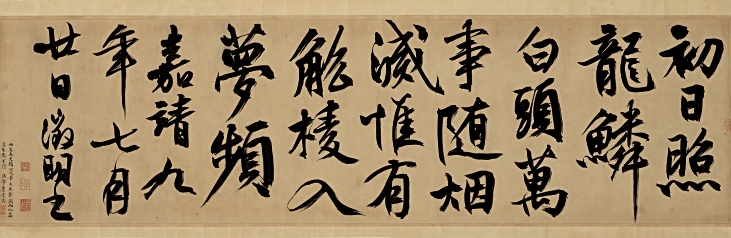 初日照
龍鱗
白頭萬
事随烟
滅惟有
觚棱入
夢頻
嘉靖九
年七月
廿日徵明書